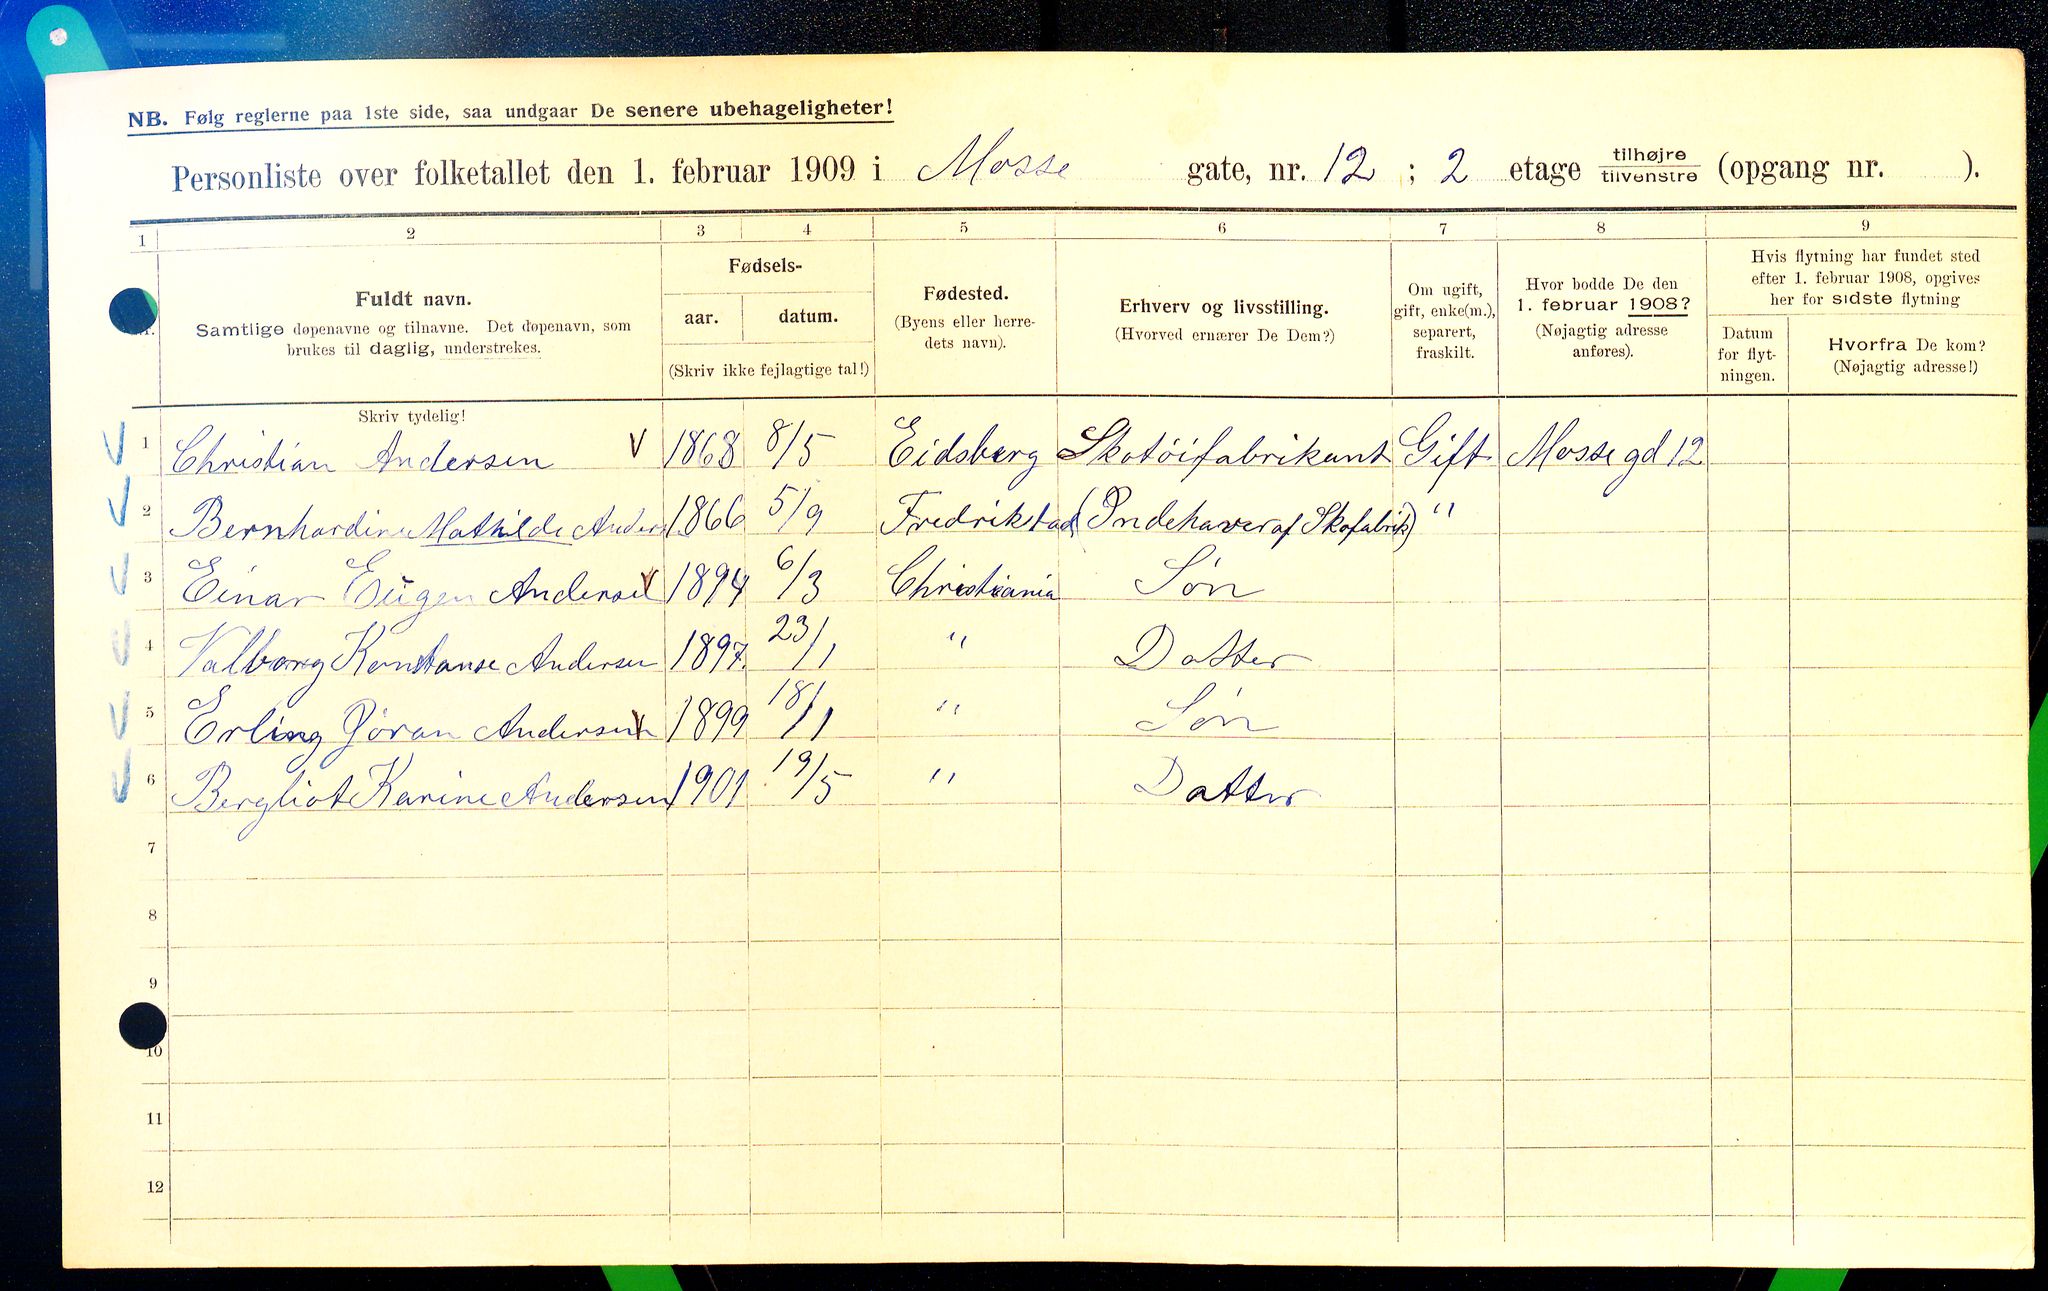 NB. Følg reglerne paa 1ste side, saa undgaar De senere ubehageligheter!
Personliste over folketallet den 1. februar 1909 i Mosse gate, nr. 12 ; 2 etage tilhøjre tilvenstre (opgang nr. ).
1 2 3 4 5 6 7 8 9
Fuldt navn.
Samtlige døpenavne og tilnavne. Det døpenavn, som
brukes til daglig, understrekes.
Fødsels-
aar. datum.
(Skriv ikke fejlagtige tal!)
Fødested.
(Byens eller herre-
dets navn).
Erhverv og livsstilling.
(Hvorved ernærer De Dem?)
Om ugift,
gift, enke(m.),
separert,
fraskilt.
Hvor bodde De den
1. februar 1908?
(Nøjagtig adresse
anføres).
Hvis flytning har fundet sted
efter 1. februar 1908, opgives
her for sidste flytning
Datum
for flyt-
ningen.
Hvorfra De kom?
(Nøjagtig adresse!)
Skriv tydelig!
1 Christian Andersen 1868 8/5 Eidsberg Skotöifabrikant Gift Mossegd 12
2 Bernhardine Mathilde Anders 1866 5/9 Fredrikstad (Indehaver af Skofabrik) "
3 Einar Eugen Andersen 1894 6/3 Christiania Søn
4 Valborg Konstanse Andersen 1897. 23/1 " Datter
5 Erling Gøran Andersen 1899 18/1 " Søn
6 Bergliot Karine Andersen 1901 19/5 " Datter
7
8
9
10
11
12